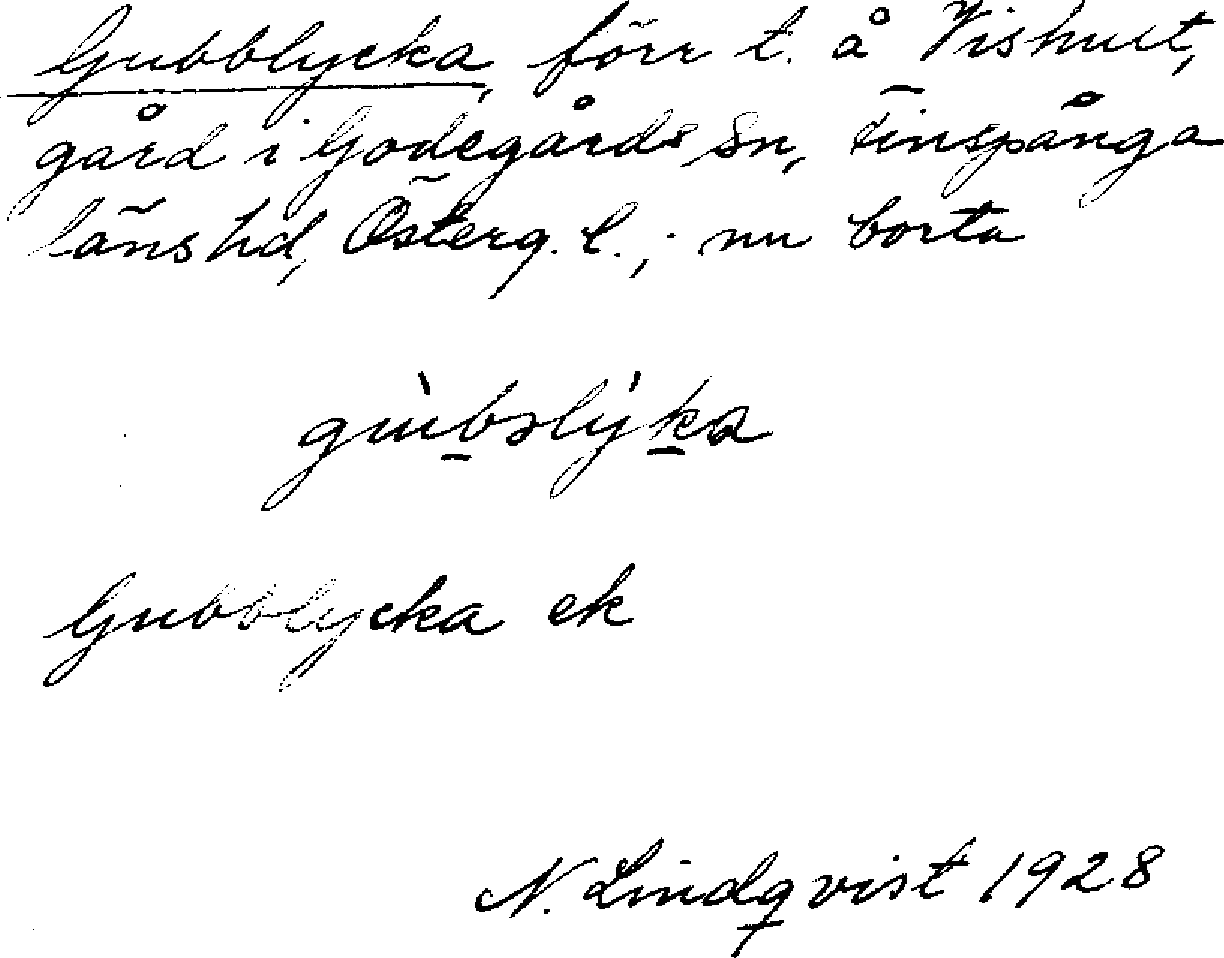 Gubblycka, förr t. å Vishult,
gård i Godegårds sn, Finspånga
läns hd, Österg. l.; nu borta
gùbəlỳka
Gubblycka ek
N. Lindqvist 1928